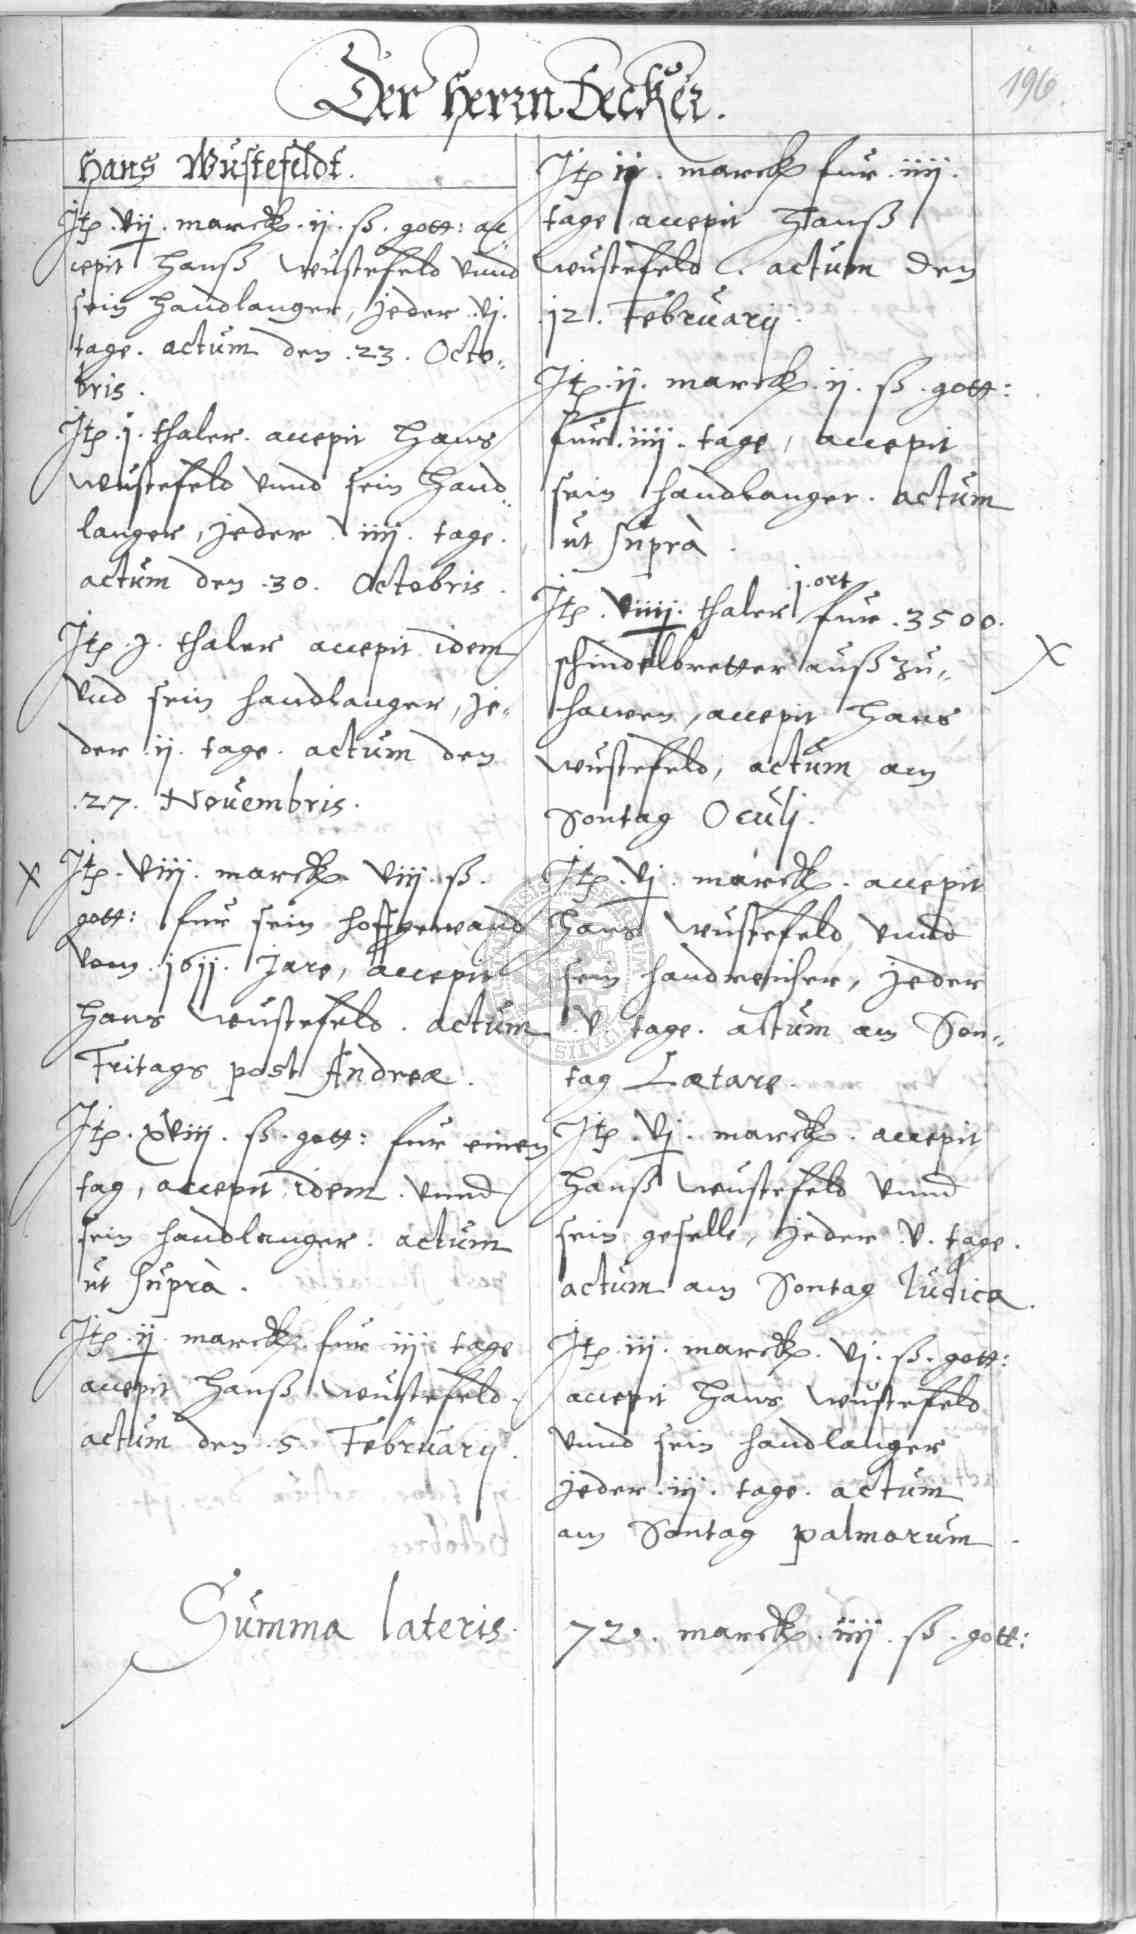 Der Herrn Decker.
196.
Hans Wustefeldt.
Itp. vij. marck. ij. ß. gott: ac„
cepit Hanß Wustefeld vnnd
sein handlanger, jeder .vj.
tage. actum den .23. Octo„
bris.
Itp. j. thaler. accepit Hans
Wustefeld vnnd sein hand„
langer, jeder iiij. tage.
actum den .30. Octobris.
Itp. j. thaler accepit idem
vnd sein handlanger, je„
der ij. tage. actum den
.27. Nouembris.
x Itp. viij. marck viij. ß.
gott: fur sein hoffgewand
vom 1611. Jare, accepit
Hans Wustefeld. actum
Fritags post Andreæ.
Itp. xviij. ß. gott: fur einen
tag, accepit idem vnnd
sein handlanger. actum
ut suprà.
Itp. ij. marck. fur iij tage
accepit Hanß Wustefeld.
actum den .5. Februarij.
Itp ij. marck fur .iiij.
tage accepit Hanß
Wustefeld. actum den
.12. Februarij.
Itp. ij. marck. ij. ß. gott:
fur .iiij. tage, accepit
sein handlanger. actum
ut suprà.
j. ort
Itp. viiij. thaler fur .3500.
schindelbretter auß zu„ x
hawen, accepit Hans
Wustefeld, actum am
Sontag Oculj.
Itp. vj. marck. accepit
Hans Wustefeld vnnd
sein handreicher, jeder
.v. tage. actum am Son„
tag Lætare.
Itp. vj. marck. accepit
Hanß Wustefeld vnnd
sein geselle, jeder .v. tage.
actum am Sontag Iudica.
Itp. iij. marck. vj. ß. gott:
accepit Hans Wustefeld
vnnd sein handlanger
jeder .iij. tage. actum
am Sontag palmarum.
Summa lateris. 72. marck. iiij. ß. gott: